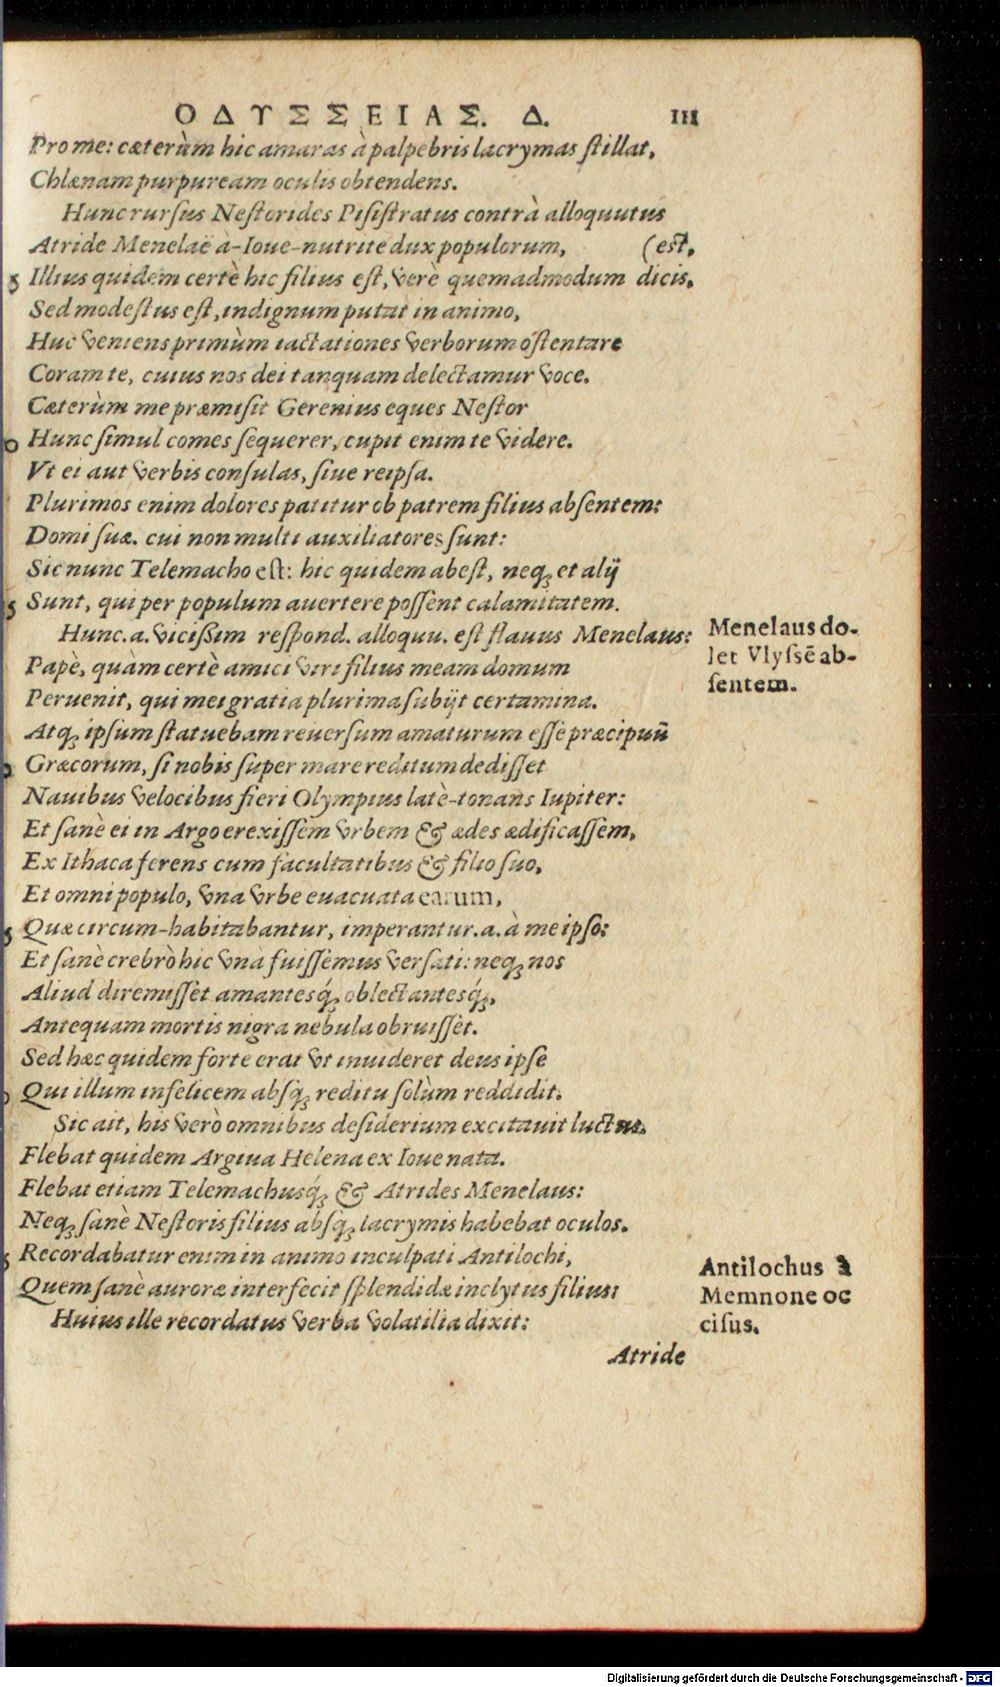 ΟΔΥΣΣΕΙΑΣ. Δ. 111
Pro me: cæterùm hic amaras à palpebris lacrymas ſtillat,
Chlænam purpuream oculis obtendens.
Hunc rurſus Neſtorides Piſiſtratus contrà alloquutus
Atride Menelaë à-Ioue-nutrite dux populorum, (est,
5 Illius quidem certè hic filius eſt, verè quemadmodum dicis,
Sed modeſtus eſt, indignum putat in animo,
Huc veniens primùm iactationes verborum oſtentare
Coram te, cuius nos dei tanquam delectamur voce.
Cæterùm me præmiſit Gerenius eques Neſtor
0 Hunc ſimul comes ſequerer, cupit enim te videre.
Vt ei aut verbis conſulas, ſiue reipſa.
Plurimos enim dolores patitur ob patrem filius abſentem:
Domi ſuæ. cui non multi auxiliatores ſunt:
Sic nunc Telemacho est: hic quidem abeſt, neq; et alij
5 Sunt, qui per populum auertere poſſent calamitatem.
Hunc .a. viciſsim reſpond. alloquu. eſt flauus Menelaus:
Papè, quàm certè amici viri filius meam domum
Peruenit, qui mei gratia plurima ſubijt certamina.
Atq; ipſum ſtatuebam reuerſum amaturum eſſe præcipuũ
0 Græcorum, ſi nobis ſuper mare reditum dediſſet
Nauibus velocibus fieri Olympius latè-tonans Iupiter:
Et ſanè ei in Argo erexiſſem vrbem & ædes ædificaſſem,
Ex Ithaca ferens cum facultatibus & filio ſuo,
Et omni populo, vna vrbe euacuata earum,
5 Quæ circum-habitabantur, imperantur .a. à me ipſo:
Et ſanè crebrò hic vna fuiſſemus verſati: neq; nos
Aliud diremiſſet amantesq́; oblectantesq́;,
Antequam mortis nigra nebula obruiſſet.
Sed hæc quidem forte erat vt inuideret deus ipſe
0 Qui illum infelicem absq́; reditu ſolùm reddidit.
Sic ait, his verò omnibus deſiderium excitauit luctus.
Flebat quidem Argiua Helena ex Ioue nata.
Flebat etiam Telemachusq́; & Atrides Menelaus:
Neq; ſanè Neſtoris filius absq́; lacrymis habebat oculos.
5 Recordabatur enim in animo inculpati Antilochi,
Quem ſanè auroræ interfecit ſplendidæ inclytus filius:
Huius ille recordatus verba volatilia dixit:
Atride
Menelaus do-
let Vlyſsẽ ab-
ſentem.
Antilochus à
Memnone oc
ciſus.
Digitalisierung gefördert durch die Deutsche Forschungsgemeinschaft - DFG